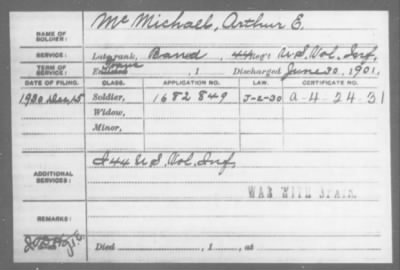 NAME OF SOLDIER: McMichael, Arthur E.
SERVICE: Late rank, Band, 44 Reg't U.S. Vol. Inf.
TERM OF SERVICE: Enlisted , 1 Discharged June 30, 1901.
DATE OF FILING. CLASS. APPLICATION NO. LAW. CERTIFICATE NO.
1930 Dec. 15 Soldier, 1682849 J-2-30 a-4-24-31
Widow,
Minor,
ADDITIONAL SERVICES: I 44 U.S. Vol. Inf.
WAR WITH SPAIN.
REMARKS:
Died , 1 , at